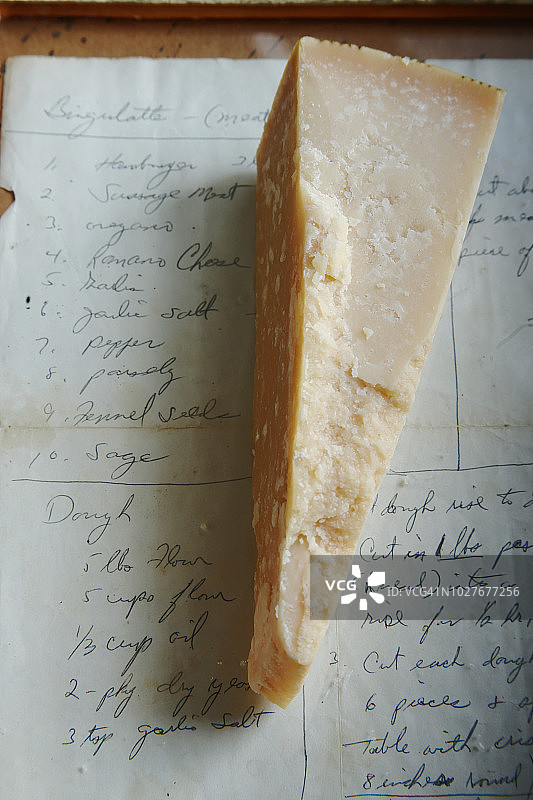 Bingulatte - (meat
1. Hamburger 2
2. Sausage Meat
3. oregano
4. Romano Chese
5. Garlic
6. garlic salt -
7. pepper
8. parsely
9. Fennel Seeds
10. Sage
Dough
5 lbs Flour
5 cups flour
1/3 cup oil
2 - pkg dry yeas
3 tsp garlic salt
piece of
dough rise to a
Cut in 1 lbs
rise for 1/2 hr,
3. Cut each dough
6 pieces &
Table with
8 inches round
VCG
VCG.COM
ID: VCG41N1027677256